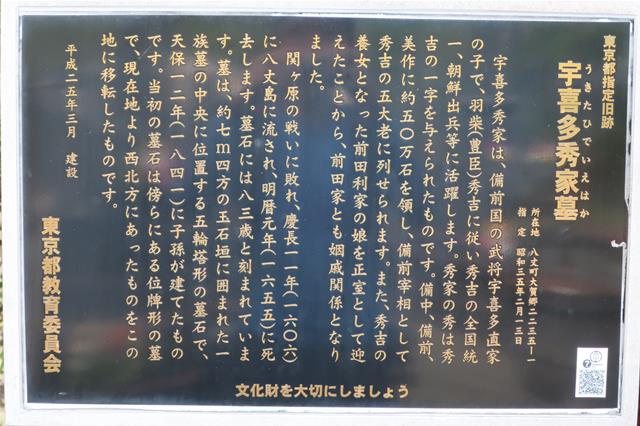 東京都指定旧跡
宇喜多秀家墓
うきたひでいえはか
所在地　八丈町大賀郷二三五—一
指　定　昭和三五年二月一三日
宇喜多秀家は、備前国の武将宇喜多直家
の子で、羽柴(豊臣)秀吉に従い秀吉の全国統
一、朝鮮出兵等に活躍します。秀家の秀は秀
吉の一字を与えられたものです。備中、備前、
美作に約五〇万石を領し、備前宰相として
秀吉の五大老に列せられます。また、秀吉の
養女となった前田利家の娘を正室として迎
えたことから、前田家とも姻戚関係となり
ました。
関ヶ原の戦いに敗れ、慶長一一年(一六〇六)
に八丈島に流され、明暦元年(一六五五)に死
去します。墓石には八三歳と刻まれていま
す。墓は、約七ｍ四方の玉石垣に囲まれた一
族墓の中央に位置する五輪塔形の墓石で、
天保一二年(一八四一)に子孫が建てたもの
です。当初の墓石は傍らにある位牌形の墓
で、現在地より西北方にあったものをこの
地に移転したものです。
平成二五年三月　建設
東京都教育委員会
文化財を大切にしましょう